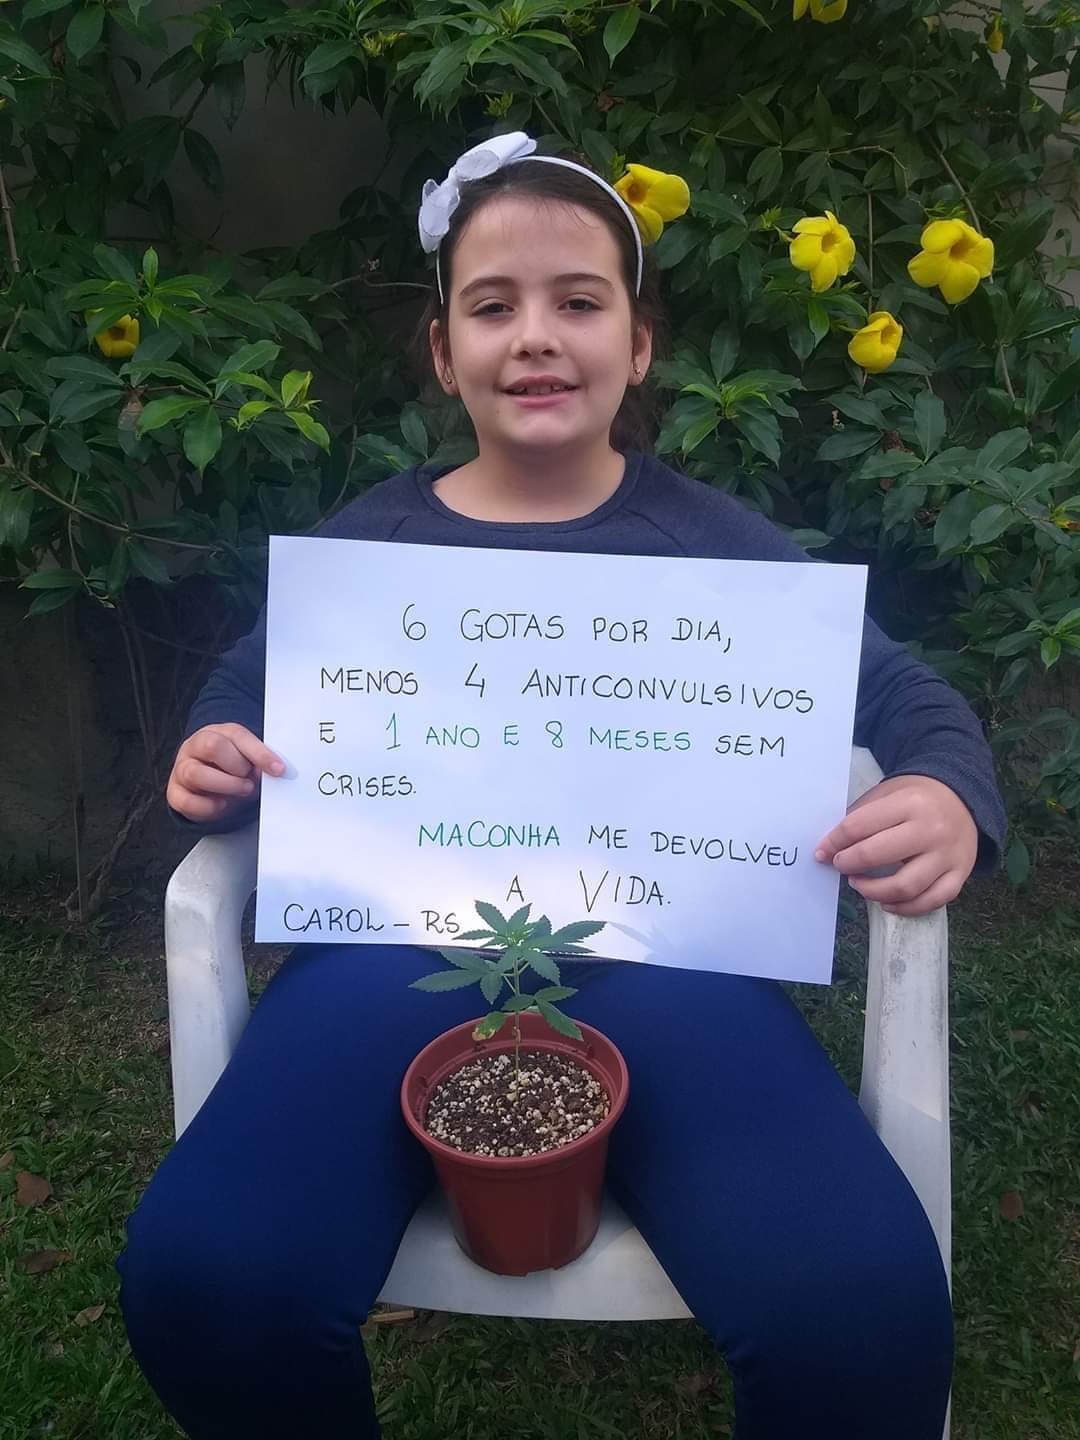 6 GOTAS POR DIA,
MENOS 4 ANTICONVULSIVOS
E 1 ANO E 8 MESES SEM
CRISES.
MACONHA ME DEVOLVEU
A VIDA.
CAROL - RS